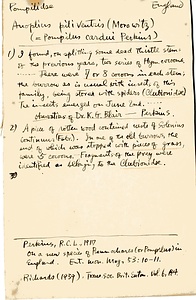 Pompilidae England
Anoplius piliventris (Morawitz)
(= Pompilus cardui Perkins)
1) I found, on splitting some dead thistle stems
of the previous years, two series of Hym. cocoons
...... There were 7 or 8 cocoons in each stem;
the burrow is as usual with insects of this
family, being stored with spiders (Clubionidae)
The insects emerged on June 2nd.
Observation of Dr. K. G. Blair — Perkins.
2) A piece of rotten wood contained nests of Solenius
continuus (Fabr.). In one of its old burrows the
end of which was stopped with pieces of grass,
were 5 cocoons. Fragments of the prey were
identified as belonging to the Clubionidae.
Perkins, R.C.L. 1917
On a new species of Psammochares (or Pompilus) in
England. Ent. Mon. Mag. 53: 10-11.
Richards (1939). Trans. Soc. Brit. Entom. Vol. 6, pt